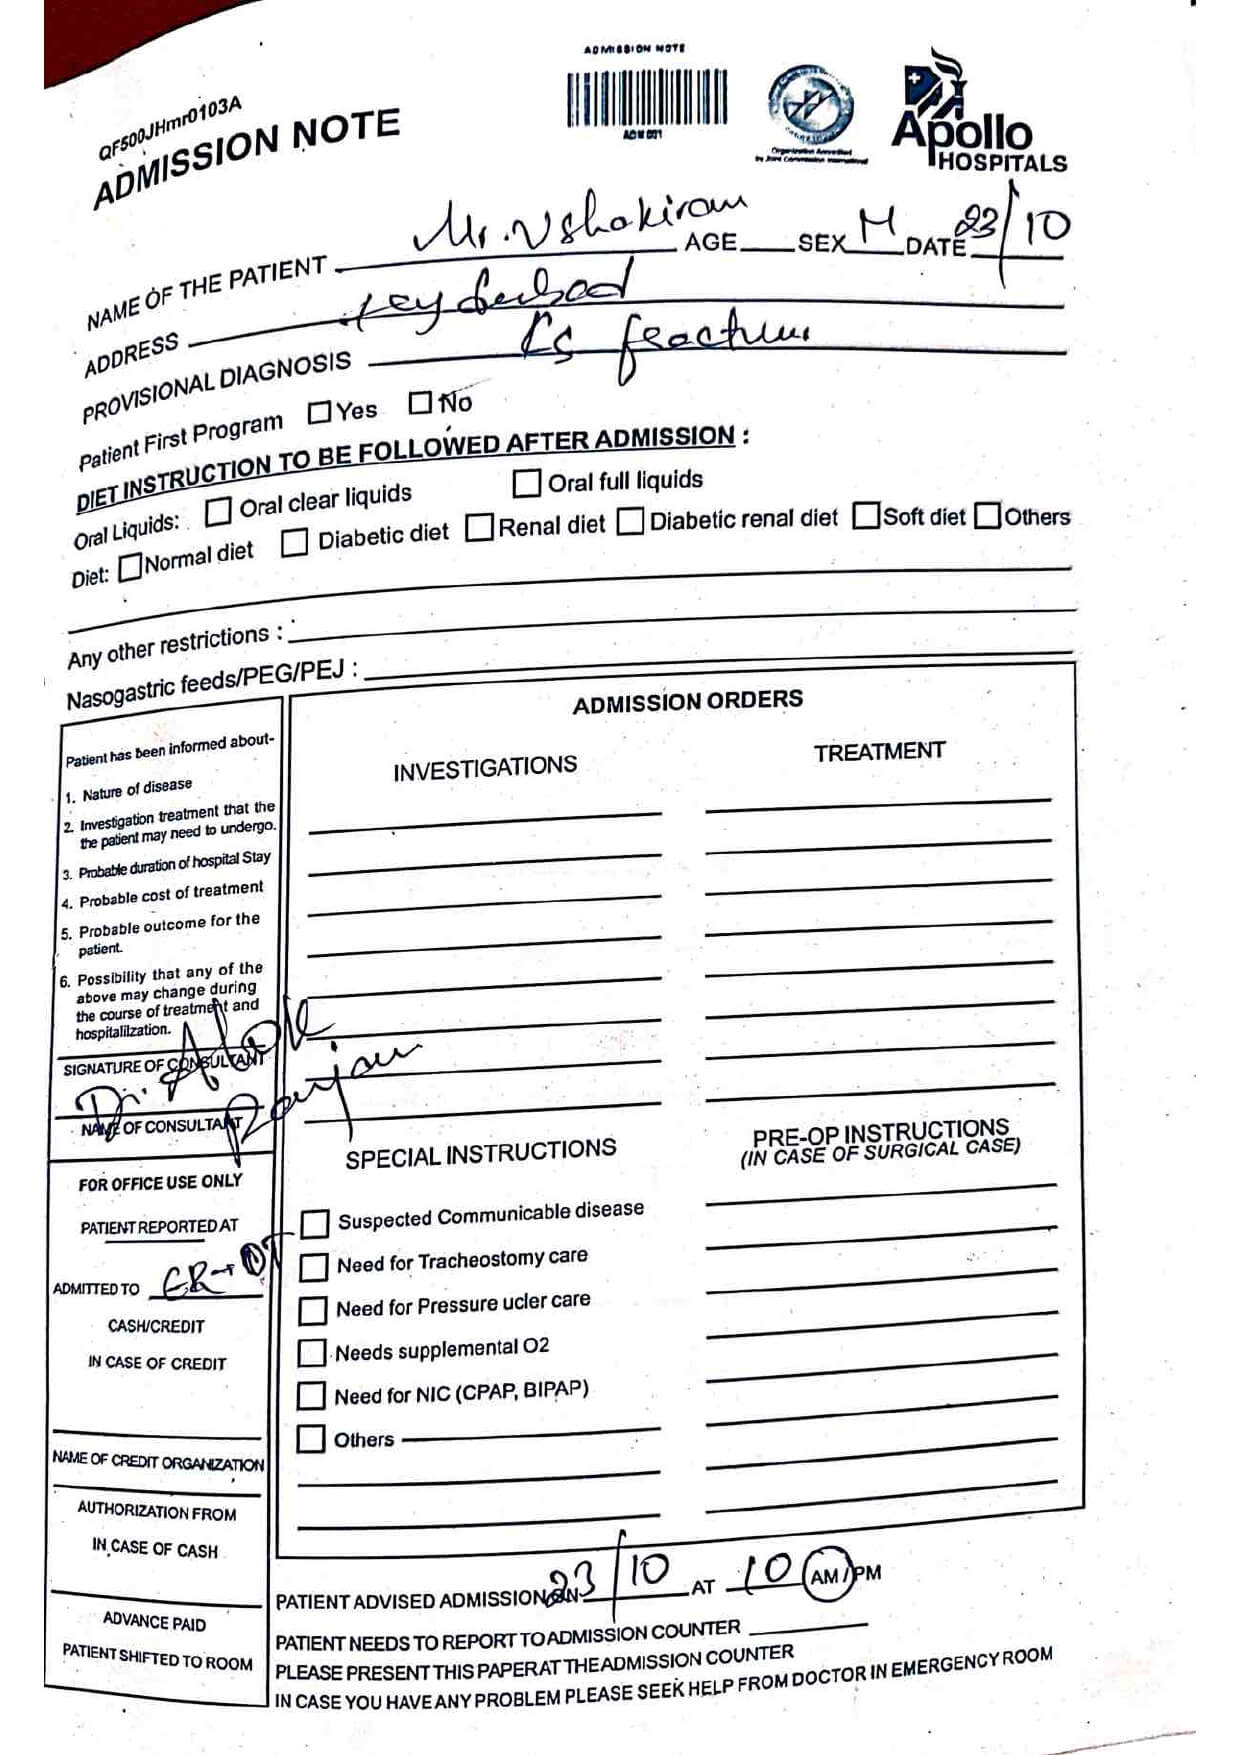 ADMISSION NOTE
ADM 001
QF500JHmr0103A
ADMISSION NOTE
Organization Accredited
by Joint Commission International
Apollo
HOSPITALS
NAME OF THE PATIENT Mr. Ushakiram AGE SEX M DATE 23/10
ADDRESS Heyderbad
PROVISIONAL DIAGNOSIS fracture
Patient First Program ☐ Yes ☐ No
DIET INSTRUCTION TO BE FOLLOWED AFTER ADMISSION :
Oral Liquids: ☐ Oral clear liquids ☐ Oral full liquids
Diet: ☐ Normal diet ☐ Diabetic diet ☐ Renal diet ☐ Diabetic renal diet ☐ Soft diet ☐ Others
Any other restrictions :
Nasogastric feeds/PEG/PEJ :
Patient has been informed about-
1. Nature of disease
2. Investigation treatment that the
the patient may need to undergo.
3. Probable duration of hospital Stay
4. Probable cost of treatment
5. Probable outcome for the
patient.
6. Possibility that any of the
above may change during
the course of treatment and
hospitalilzation.
SIGNATURE OF CONSULTANT
Dr. Alok
Ranjan
NAME OF CONSULTANT
FOR OFFICE USE ONLY
PATIENT REPORTED AT
ADMITTED TO ER→OT
CASH/CREDIT
IN CASE OF CREDIT
NAME OF CREDIT ORGANIZATION
AUTHORIZATION FROM
IN CASE OF CASH
ADVANCE PAID
PATIENT SHIFTED TO ROOM
ADMISSION ORDERS
INVESTIGATIONS
TREATMENT
SPECIAL INSTRUCTIONS
☐ Suspected Communicable disease
☐ Need for Tracheostomy care
☐ Need for Pressure ucler care
☐ Needs supplemental O2
☐ Need for NIC (CPAP, BIPAP)
☐ Others
PRE-OP INSTRUCTIONS
(IN CASE OF SURGICAL CASE)
PATIENT ADVISED ADMISSION ON 23/10 AT 10 AM/PM
PATIENT NEEDS TO REPORT TO ADMISSION COUNTER
PLEASE PRESENT THIS PAPER AT THE ADMISSION COUNTER
IN CASE YOU HAVE ANY PROBLEM PLEASE SEEK HELP FROM DOCTOR IN EMERGENCY ROOM